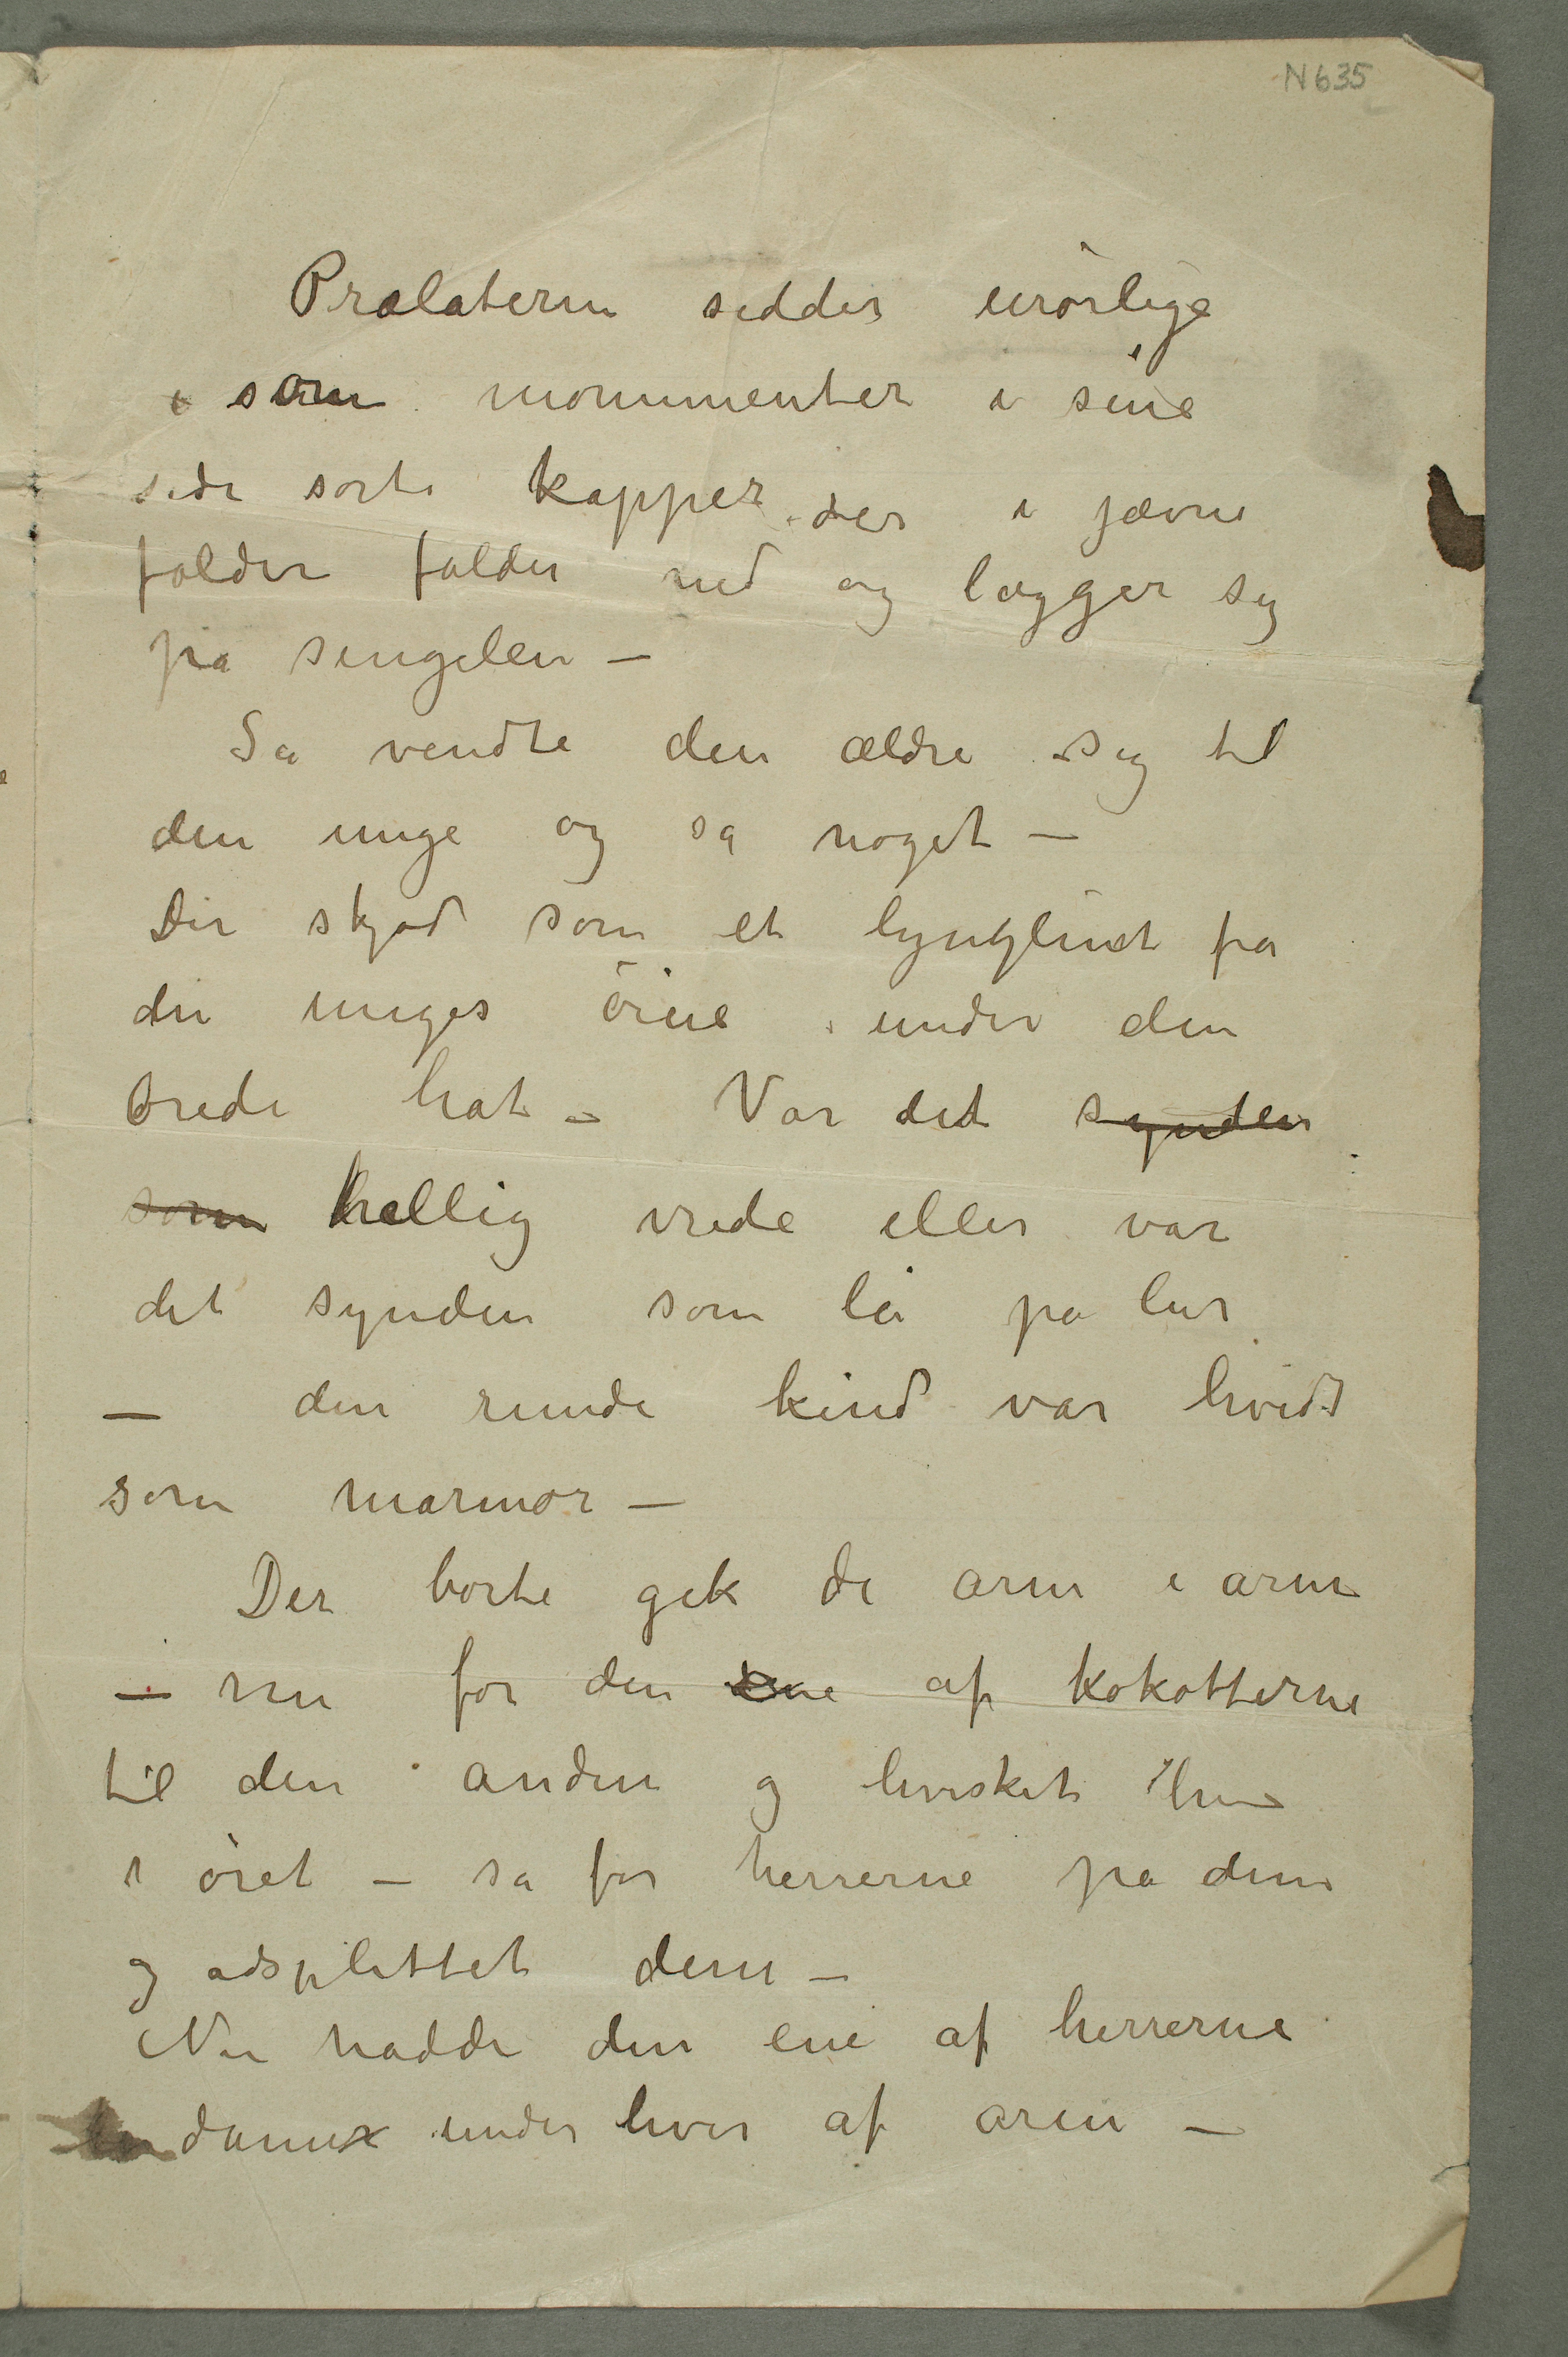 N 635
Prælaterne sidder urörlige
i som monumenter i sine
side sorte kapper der i jævne
folder falder ned og lægger sig
på singelen –
Så vendte den ældre sig til
den unge og sa noget –
Der skjød som et lynglimt fra
den unges öine under den
brede hat – Var det synden
som hellig vrede eller var
det synden som lå på lur
– den runde kind var hvid
som marmor –
Der borte gik de arm i arm
– nu for den ene af kokotterne
til den anden og hvisket hun
i öret – så for herrerne på dem
og adsplittet dem –
Nu hadde den ene af herrerne
en dame under hver af arm –